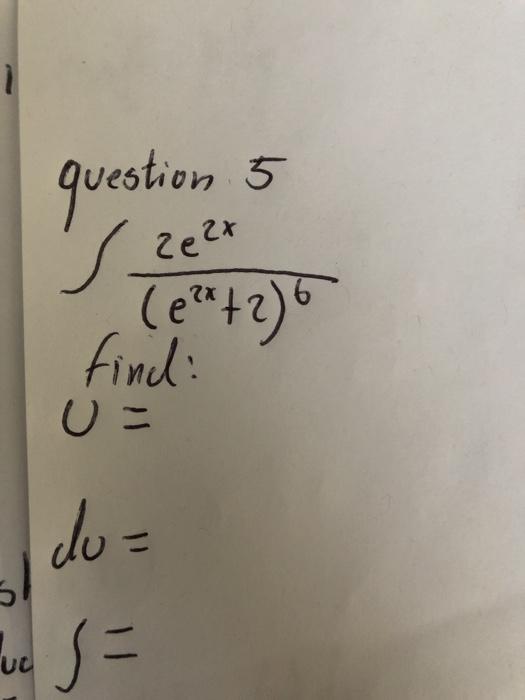 question 5
∫ 2e^{2x}
(e^{2x}+2)^6
find:
U =
du =
∫ =